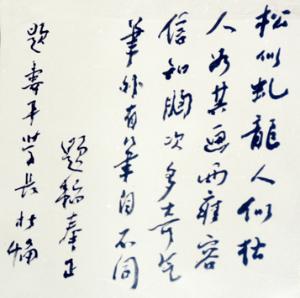 松似虬龍人似松
人如其畫兩雍容
信知胸次多奇气
筆外有筆自不同
題稿奉正
題婁平學長